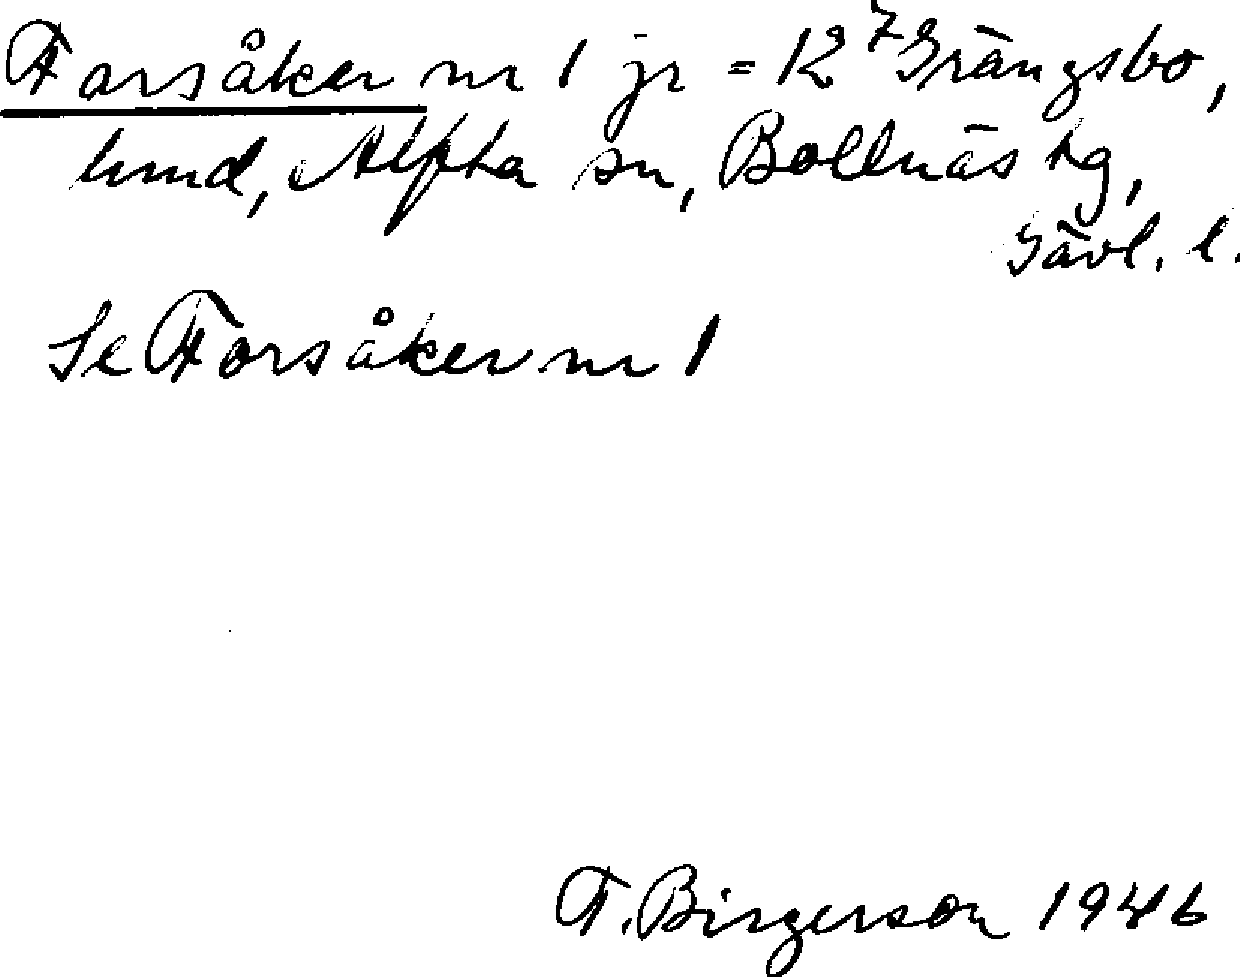 Forsåker nr 1 jr = 12⁷ Grängsbo,
hmd, Alfta sn, Bollnäs tg,
Gävl. l.
Se Forsåker nr 1
F. Birgerson 1946